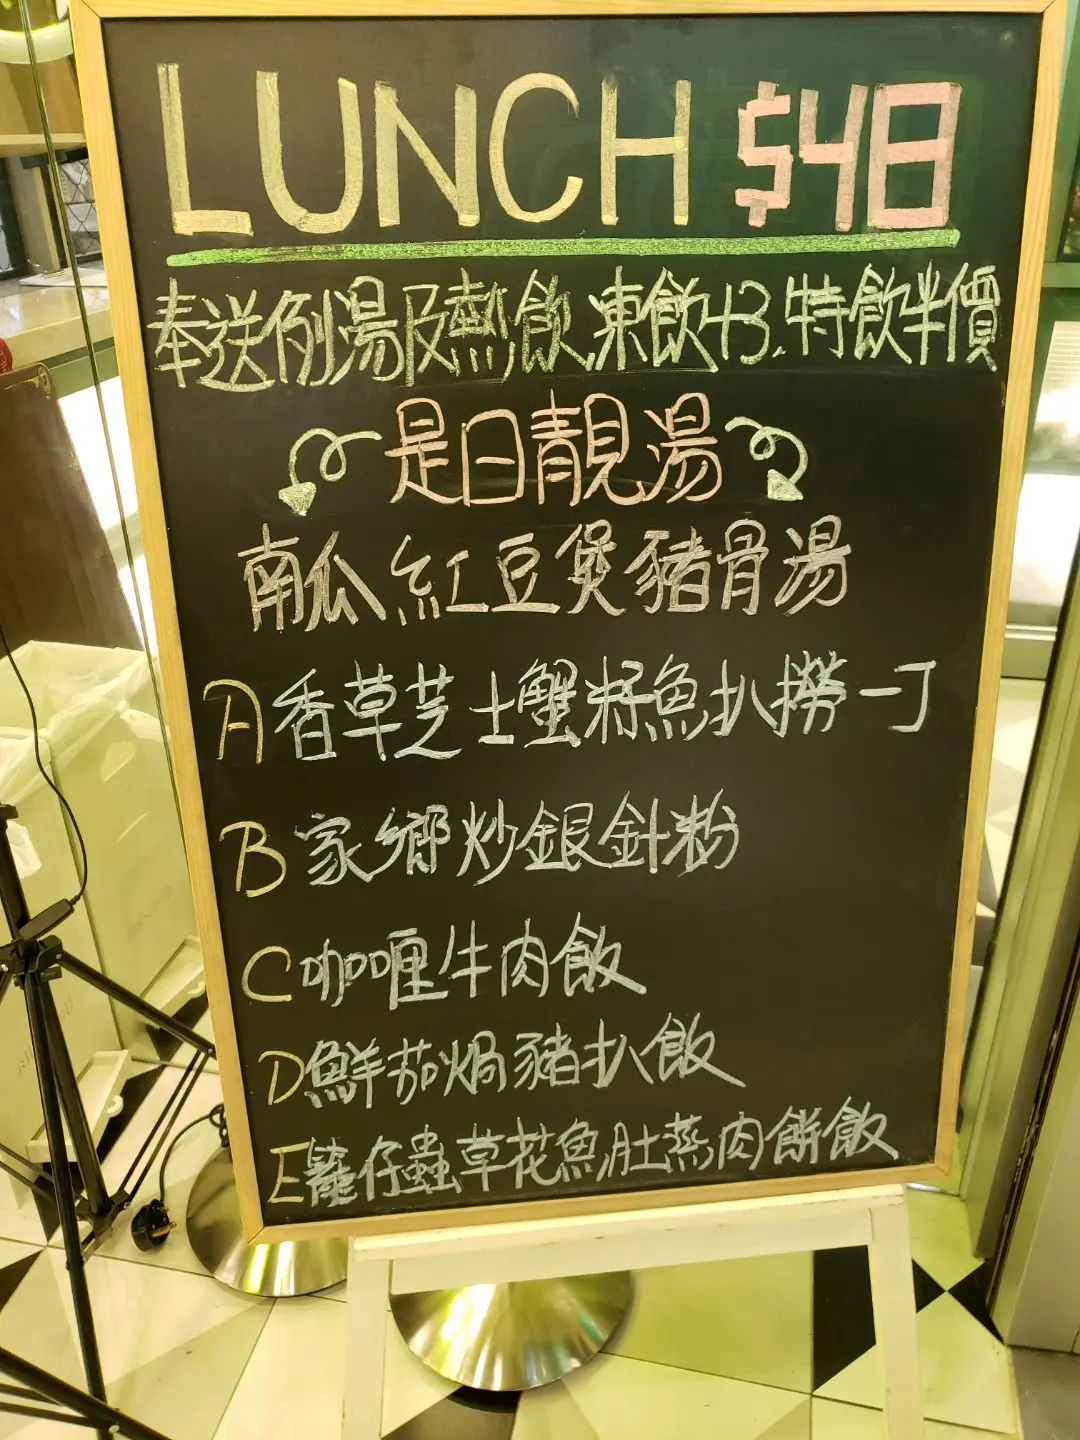 LUNCH $48
奉送例湯及熱飲,凍飲+3,特飲半價
是日靚湯
南瓜紅豆煲豬骨湯
A 香草芝士蟹籽魚扒撈一丁
B 家鄉炒銀針粉
C 咖喱牛肉飯
D 鮮茄焗豬扒飯
E 籠仔蟲草花魚肚蒸肉餅飯